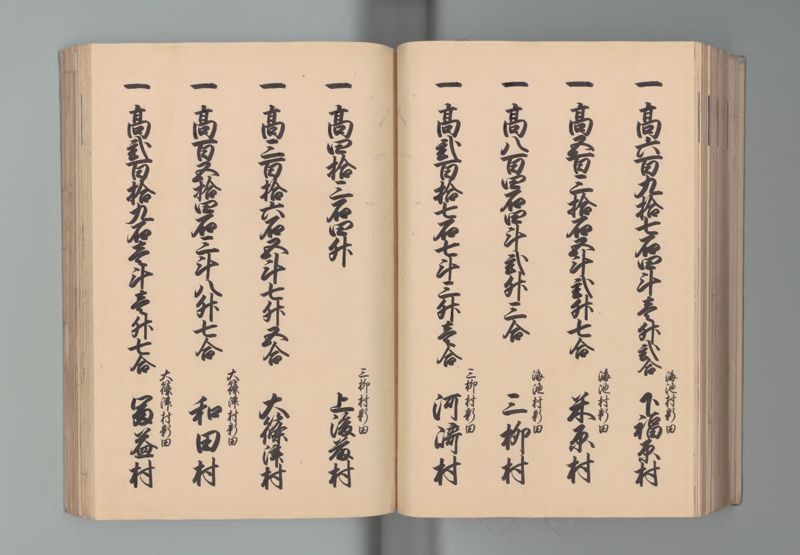 一 高六百九拾七石四斗壱升弐合
海池村新田
下福原村
一 高五百三拾石五斗弐升七合
海池村新田
米原村
一 高八百四石四斗弐升三合
海池村新田
三柳村
一 高弐百拾七石七斗三升壱合
三柳村新田
河﨑村
一 高四拾三石四升
三柳村新田
上後藤村
一 高三百拾六石五斗七升五合
大篠津村
一 高百五拾四石三斗八升七合
大篠津村新田
和田村
一 高弐百拾九石壱斗壱升七合
大篠津村新田
冨益村